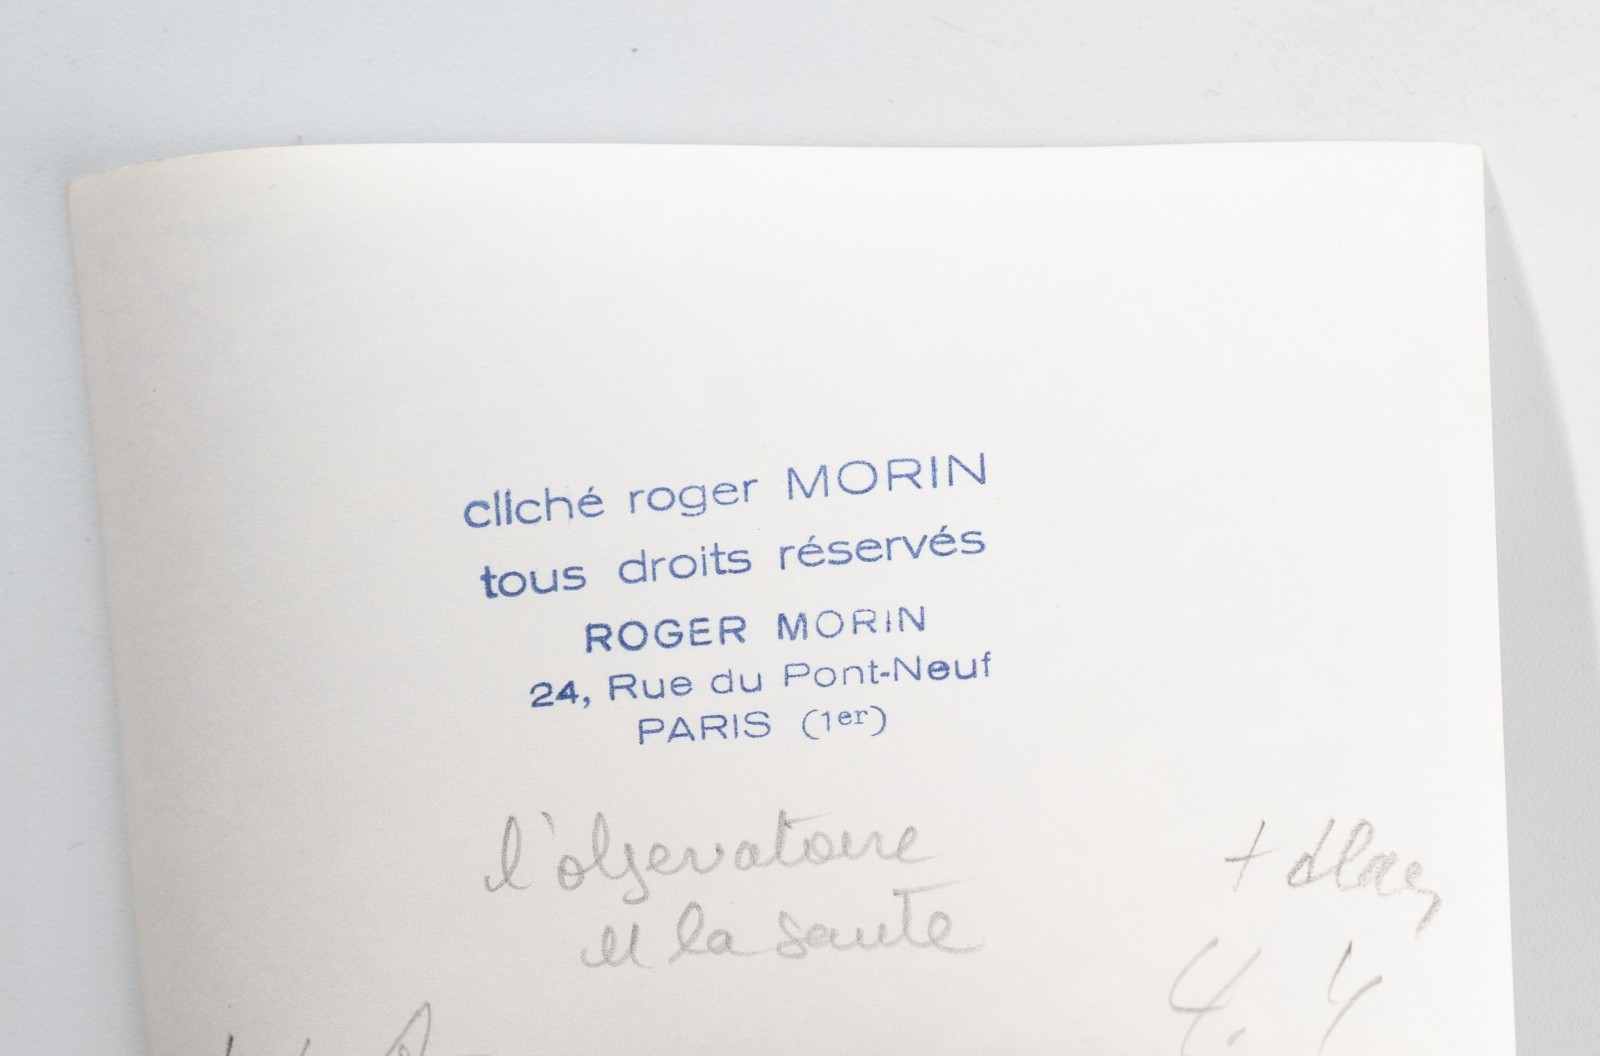 cliché roger MORIN
tous droits réservés
ROGER MORIN
24, Rue du Pont-Neuf
PARIS (1er)
l'observatoire
et la santé
+
4.